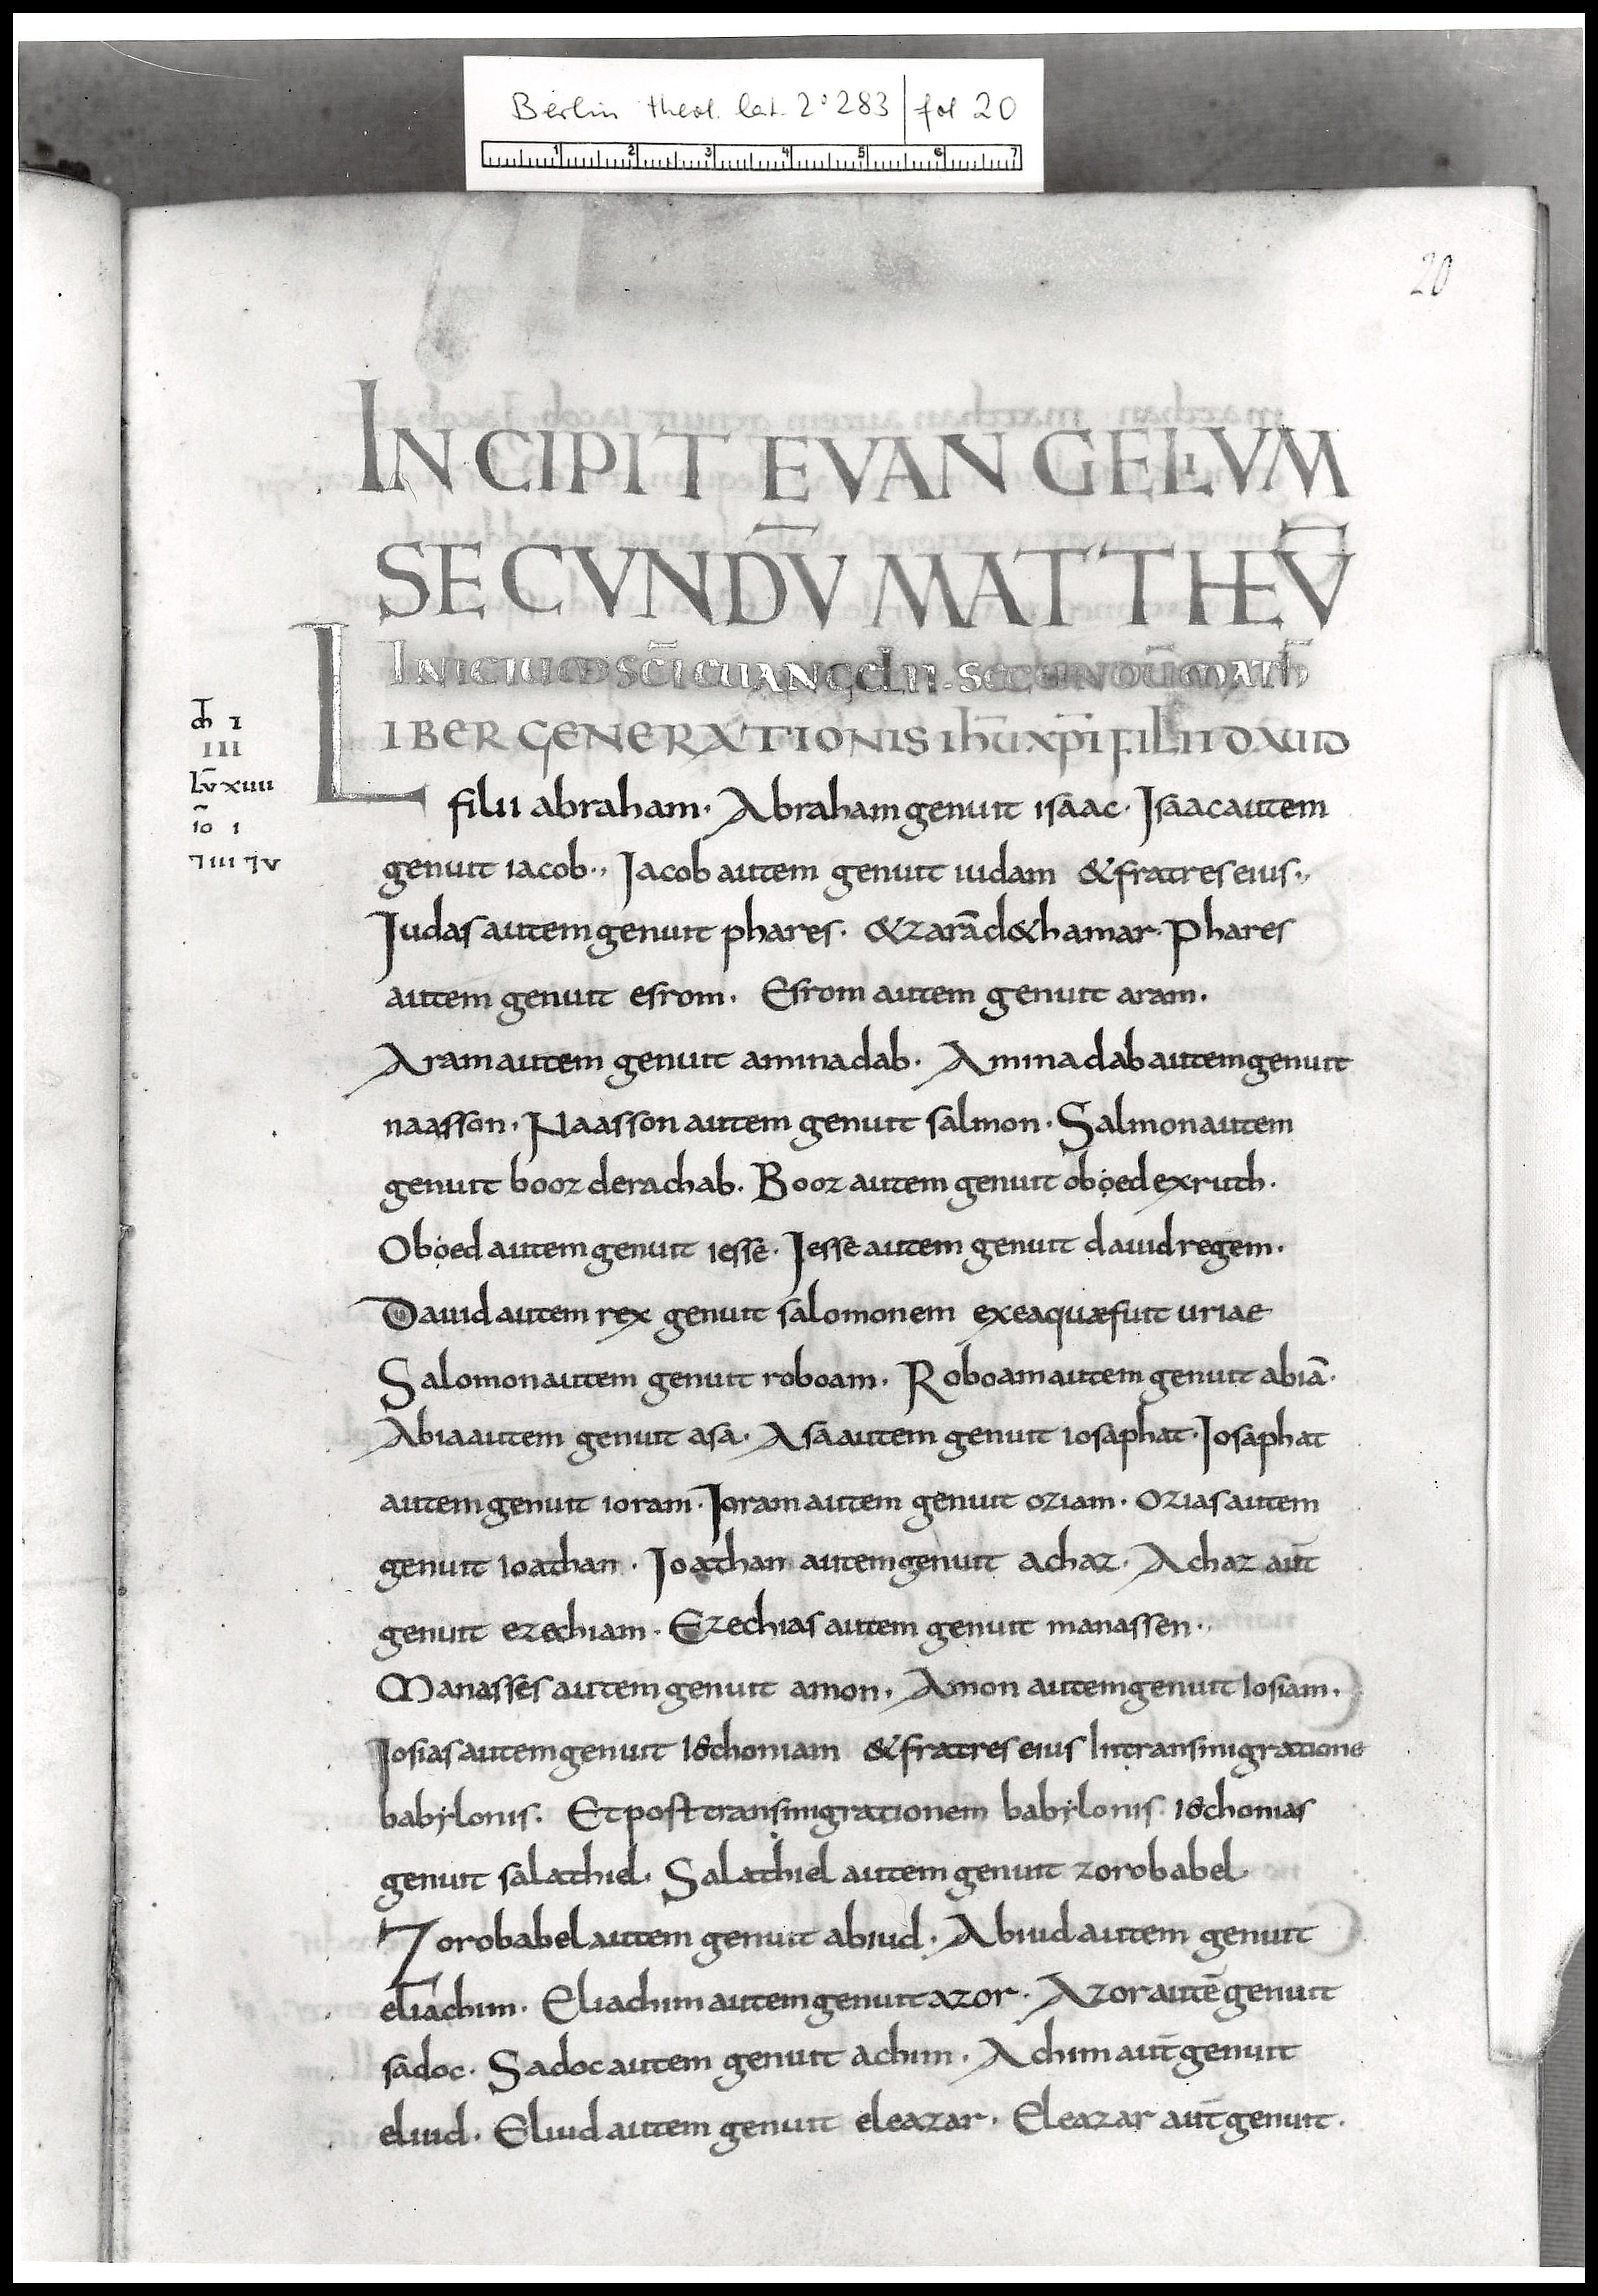 Berlin theol. lat. 2° 283 | fol 20
1 2 3 4 5 6 7
20
INCIPIT EVANGELIVM
SECVNDV̄ MATTHEV̄
INICIUM SC̄I EUANGELII SECUNDUM̄ MATH̄
LIBER GENERATIONIS IHŪ XP̄I FILII DAUID
I
III
LV̄ XIIII
IO I
⁊ IIII ⁊ V
filii abraham. Abraham genuit isaac. Isaac autem
genuit iacob., Iacob autem genuit iudam & fratres eius.,
Iudas autem genuit phares. & zarā d&hamar. Phares
autem genuit esrom. Esrom autem genuit aram.
Aram autem genuit aminadab. Aminadab autem genuit
naasson. Naasson autem genuit salmon. Salmon autem
genuit booz derachab. Booz autem genuit obọed exruth.
Obọed autem genuit iesse. Iesse autem genuit dauid regem.
Dauid autem rex genuit salomonem exeaquæfuit uriae
Salomon autem genuit roboam. Roboam autem genuit abiā.
Abia autem genuit asa. Asa autem genuit iosaphat. Iosaphat
autem genuit ioram. Ioram autem genuit oziam. Ozias autem
genuit ioathan. Ioathan autem genuit achaz. Achaz aut̄
genuit ezechiam. Ezechias autem genuit manassen.,
Manasses autem genuit amon. Amon autem genuit Iosiam.
Iosias autem genuit I&choniam & fratres eius Intransmigratione
babylonis. Et post transmigrationem babylonis. I&chonias
genuit salathiel. Salathiel autem genuit zorobabel.
Zorobabel autem genuit abiud. Abiud autem genuit
eliachim. Eliachim autem genuit azor. Azor autē genuit
sadoc. Sadoc autem genuit achim. Achim aut̄ genuit
eliud. Eliud autem genuit eleazar. Eleazar aut̄ genuit.